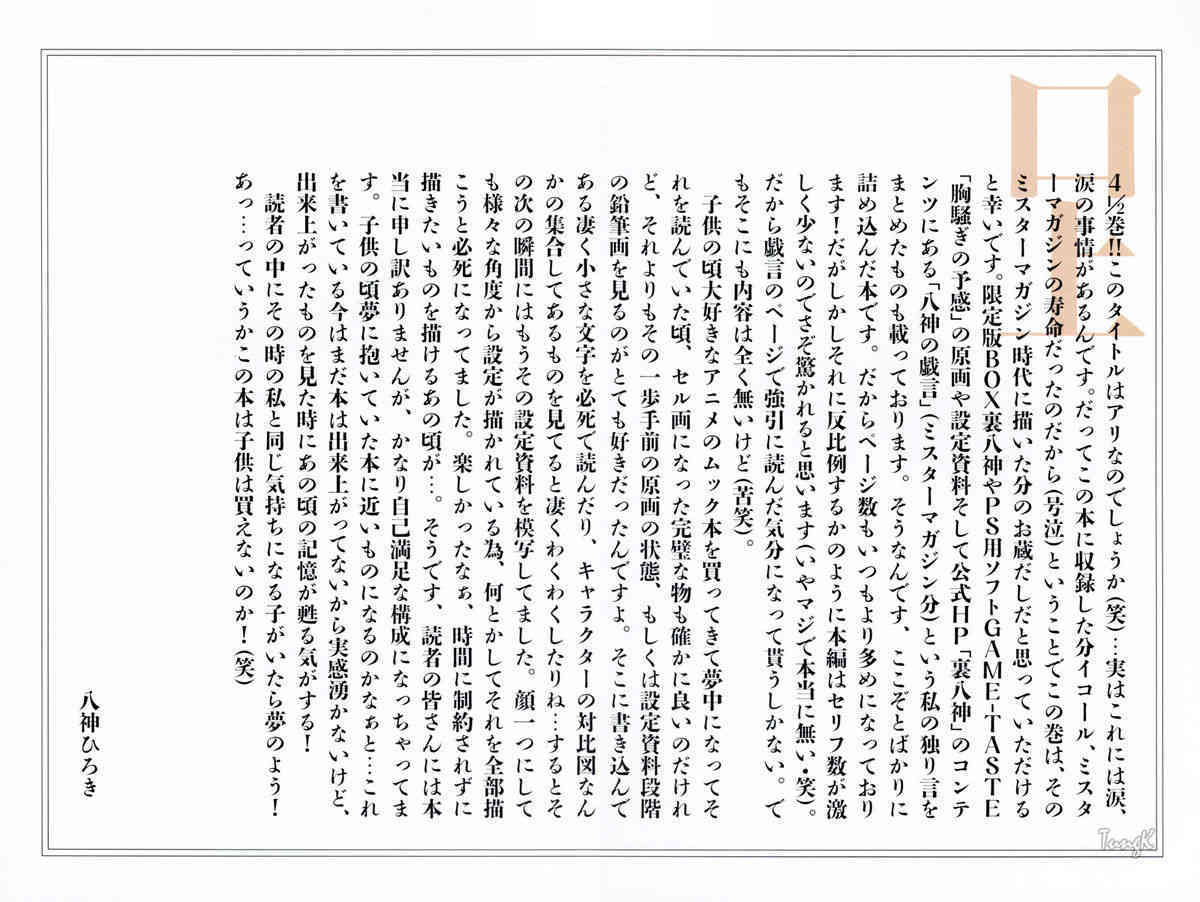 4½巻!!このタイトルはアリなのでしょうか(笑)…実はこれには涙、
涙の事情があるんです。だってこの本に収録した分イコール、ミスタ
ーマガジンの寿命だったのだから(号泣)ということでこの巻は、その
ミスターマガジン時代に描いた分のお蔵だしだと思っていただける
と幸いです。限定版BOX裏八神やPS用ソフトGAME-TASTE
「胸騒ぎの予感」の原画や設定資料そして公式HP「裏八神」のコンテ
ンツにある「八神の戯言」(ミスターマガジン分)という私の独り言を
まとめたものも載っております。そうなんです、ここぞとばかりに
詰め込んだ本です。だからページ数もいつもより多めになっており
ます!だがしかしそれに反比例するかのように本編はセリフ数が激
しく少ないのでさぞ驚かれると思います(いやマジで本当に無い・笑)。
だから戯言のページで強引に読んだ気分になって貰うしかない。で
もそこにも内容は全く無いけど(苦笑)。
子供の頃大好きなアニメのムック本を買ってきて夢中になってそ
れを読んでいた頃、セル画になった完璧な物も確かに良いのだけれ
ど、それよりもその一歩手前の原画の状態、もしくは設定資料段階
の鉛筆画を見るのがとても好きだったんですよ。そこに書き込んで
ある凄く小さな文字を必死で読んだり、キャラクターの対比図なん
かの集合してあるものを見てると凄くわくわくしたりね…するとそ
の次の瞬間にはもうその設定資料を模写してました。顔一つにして
も様々な角度から設定が描かれている為、何とかしてそれを全部描
こうと必死になってました。楽しかったなぁ、時間に制約されずに
描きたいものを描けるあの頃が…。そうです、読者の皆さんには本
当に申し訳ありませんが、かなり自己満足な構成になっちゃってま
す。子供の頃夢に抱いていた本に近いものになるのかなぁと…これ
を書いている今はまだ本は出来上がってないから実感湧かないけど、
出来上がったものを見た時にあの頃の記憶が甦る気がする!
読者の中にその時の私と同じ気持ちになる子がいたら夢のよう!
あっ…っていうかこの本は子供は買えないのか!(笑)
八神ひろき
TungK